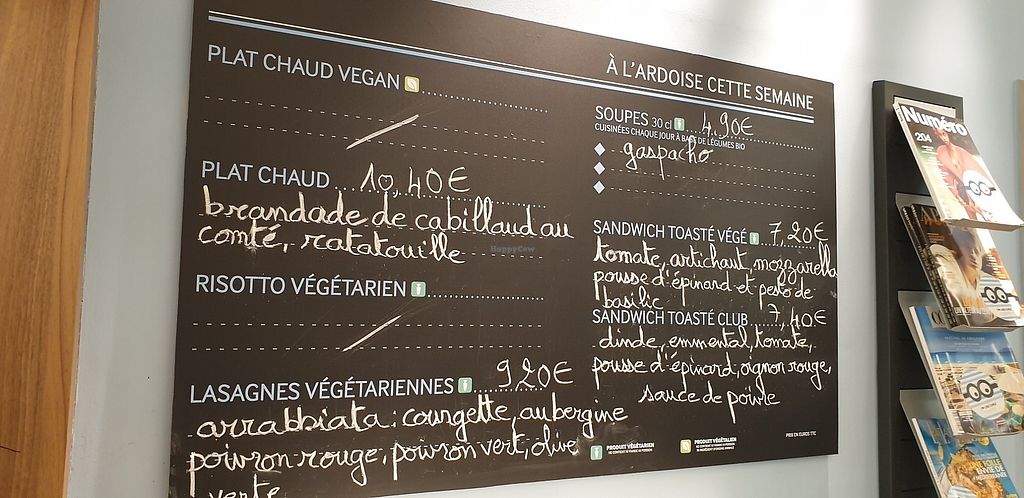 À L'ARDOISE CETTE SEMAINE
PLAT CHAUD VEGAN
PLAT CHAUD ... 10,40€
brandade de cabillaud au
comté, ratatouille
RISOTTO VÉGÉTARIEN
LASAGNES VÉGÉTARIENNES ... 9,20€
arrabbiata : courgette, aubergine
poivron rouge, poivron vert, olive
verte
SOUPES 30 cl ... 4,90€
CUISINÉES CHAQUE JOUR À BASE DE LÉGUMES BIO
gaspacho
SANDWICH TOASTÉ VÉGÉ ... 7,20€
tomate, artichaut, mozzarella
pousse d'épinard et pesto de
basilic
SANDWICH TOASTÉ CLUB ... 7,40€
dinde, emmental, tomate,
pousse d'épinard, oignon rouge,
sauce de poivre
PRODUIT VÉGÉTARIEN
NE CONTIENT NI VIANDE NI POISSON
PRODUIT VÉGÉTALIEN
PRIX EN EUROS TTC
HappyCow
Numéro
204